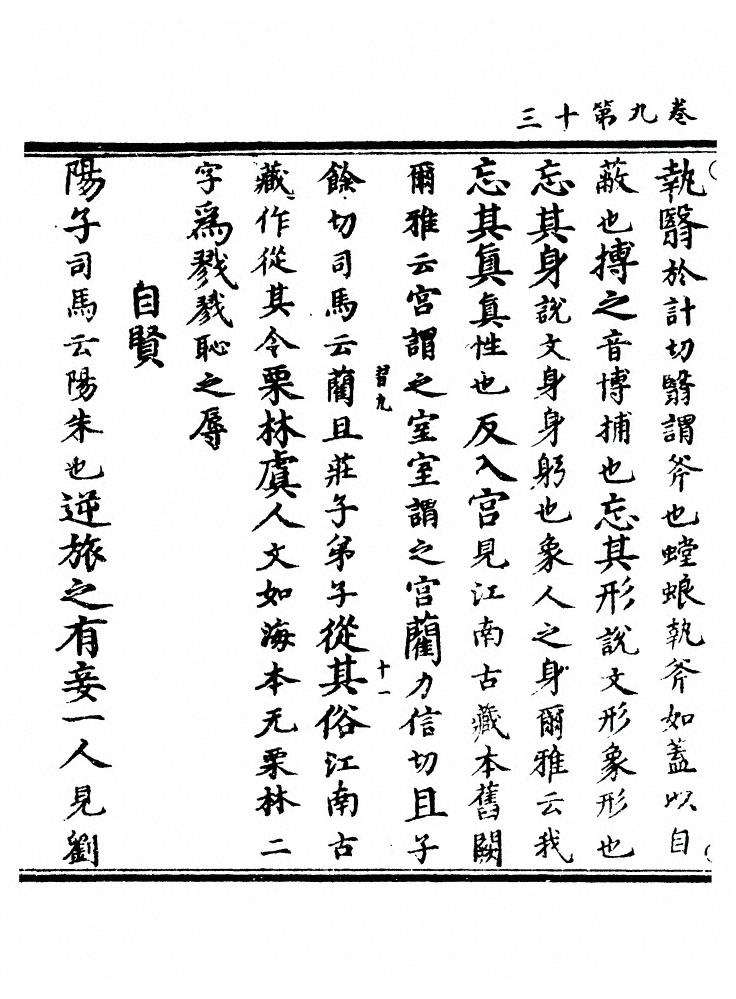 卷九第十三
執翳於計切翳謂斧也螳蜋執斧如蓋以自
蔽也搏之音博捕也忘其形說文形象形也
忘其身說文身身躬也象人之身爾雅云我
忘其真真性也反入宮見江南古藏本舊闕
爾雅云宮謂之室室謂之宮藺力信切且子
習九
十一
餘切司馬云藺且莊子弟子從其俗江南古
藏作從其令栗林虞人文如海本无栗林二
字爲戮戮恥之辱
自賢
陽子司馬云陽朱也逆旅之有妾一人見劉